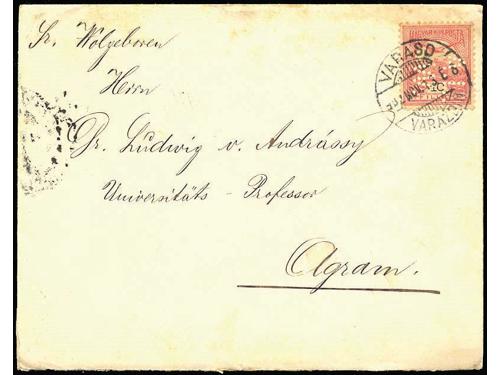 Sr. Wolgeboren
Herrn
Dr. Ludwig v. Andrássy
Universitäts - Professor
Agram.
MAGYAR KIR. POSTA
VARASD
VARAŽD